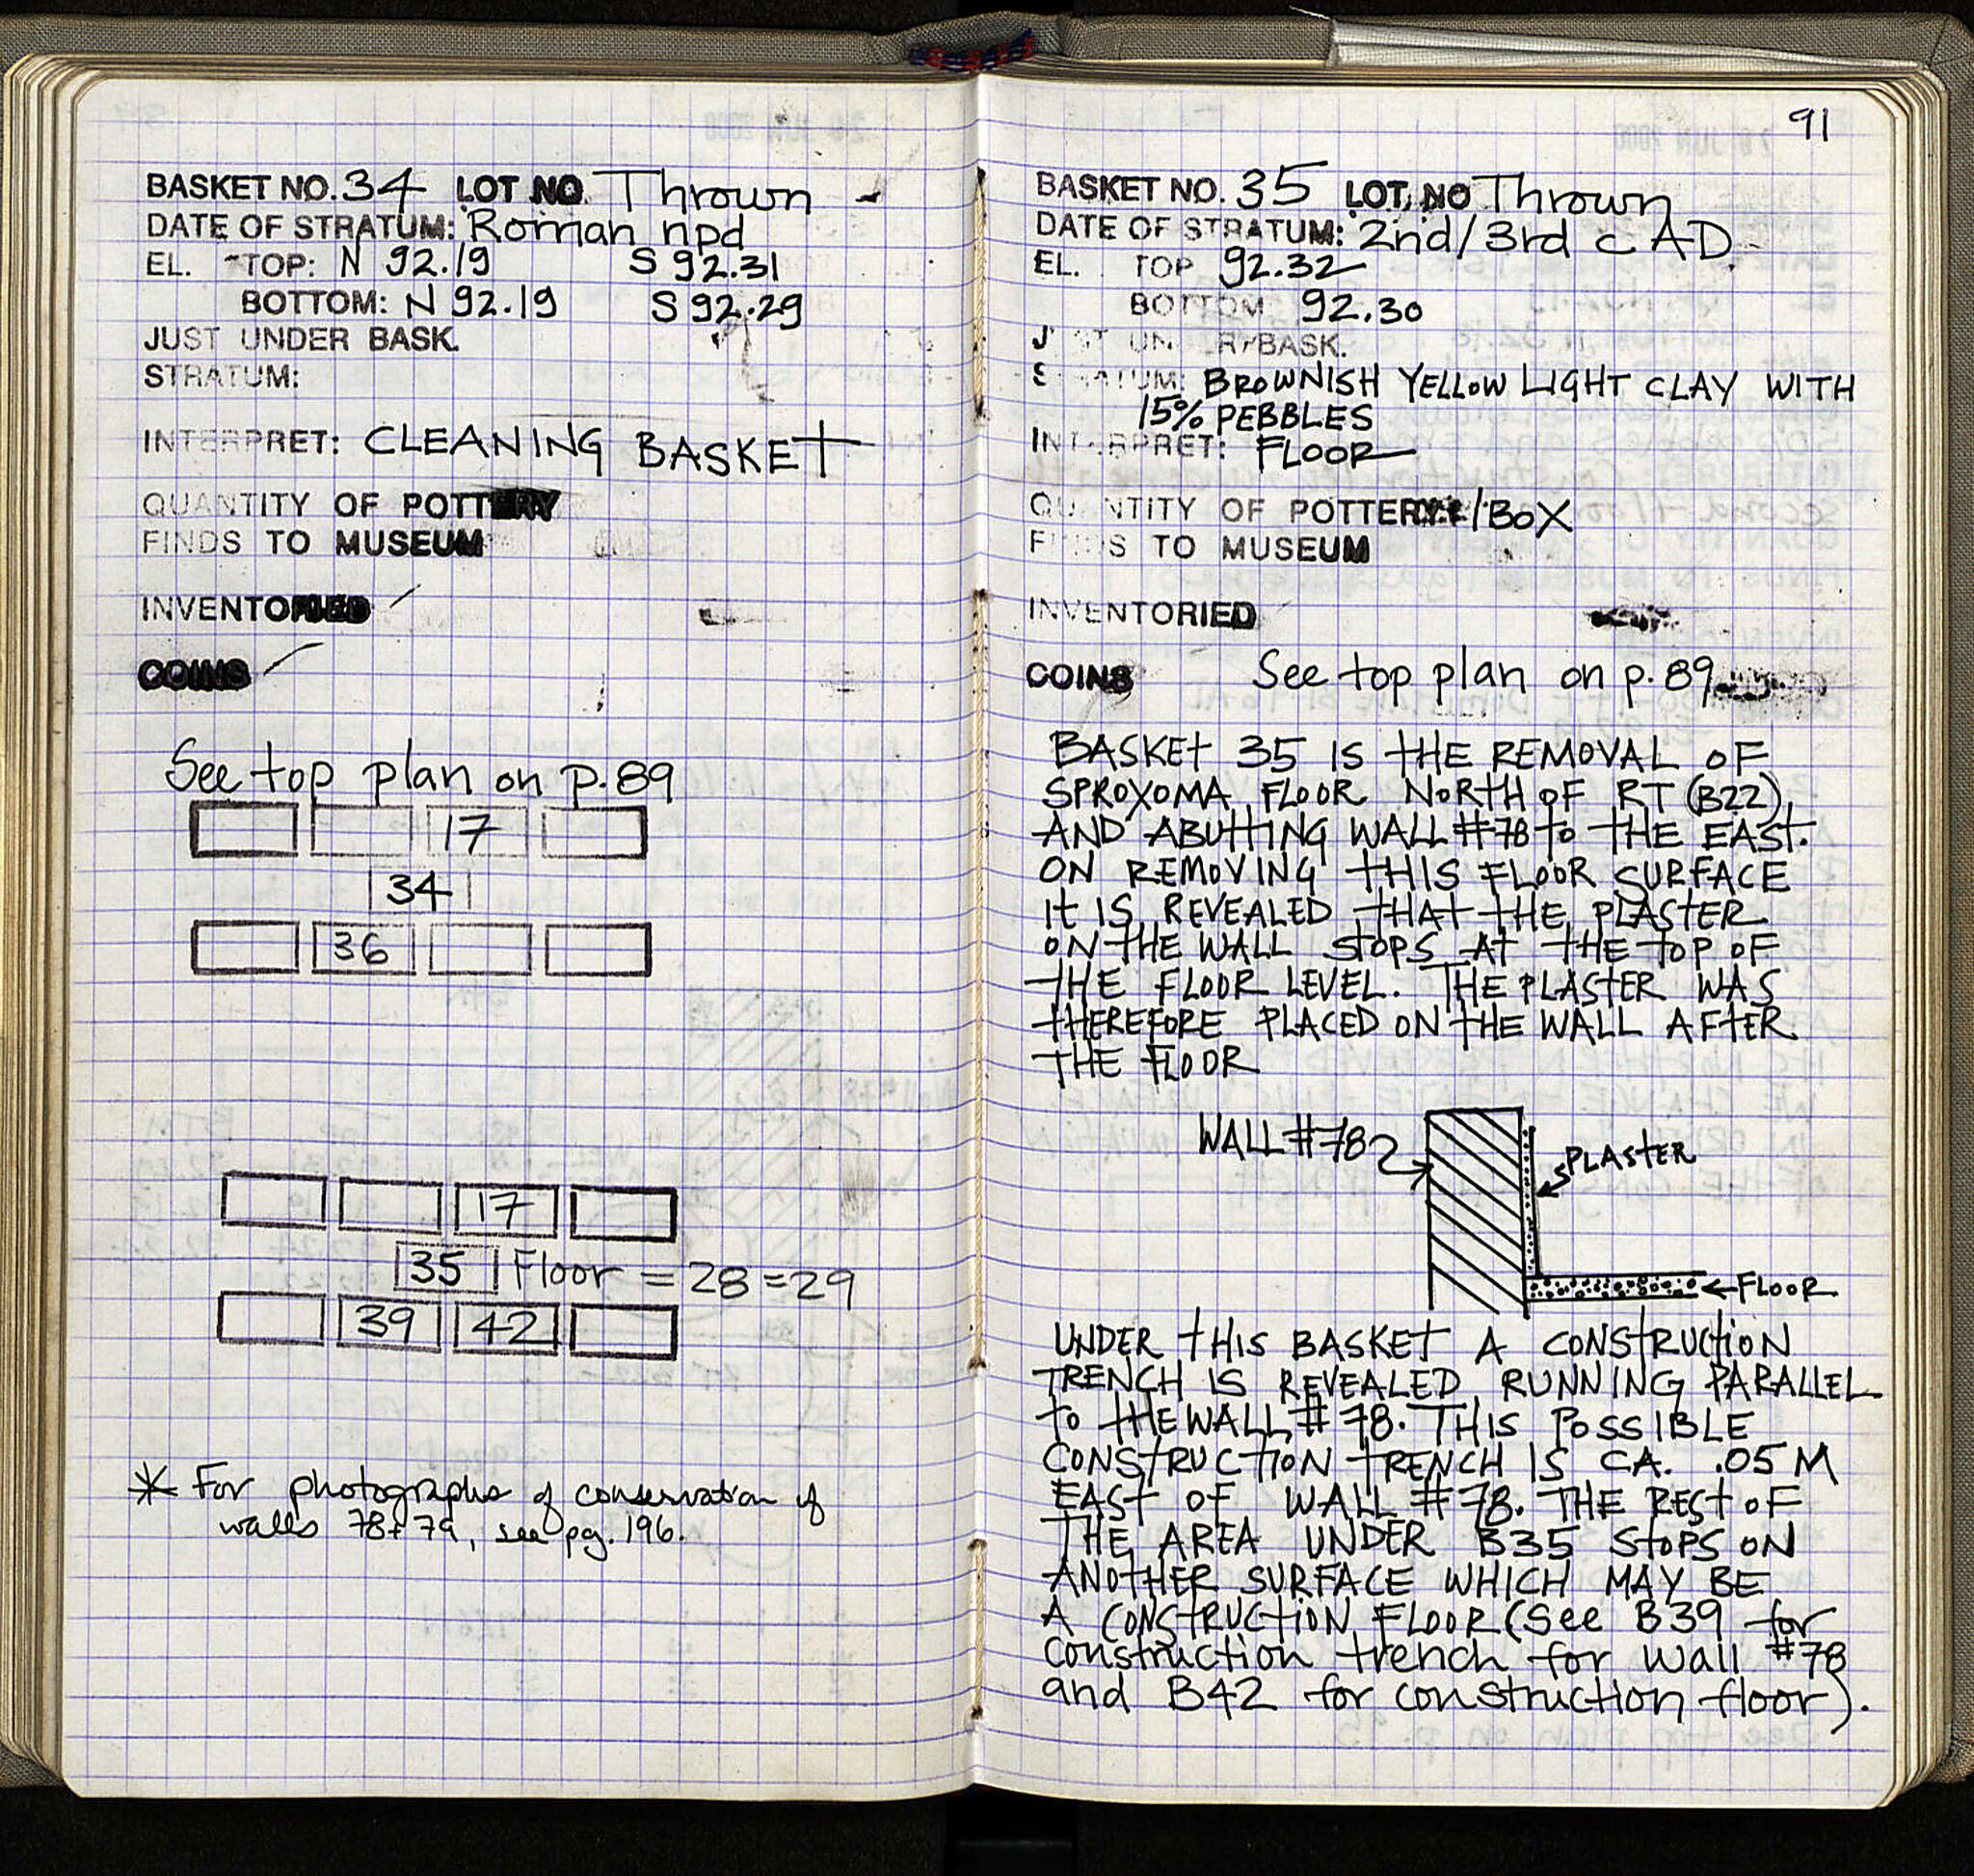 BASKET NO. 34 LOT NO Thrown -
DATE OF STRATUM: Roman npd
EL. TOP: N 92.19 S 92.31
BOTTOM: N 92.19 S 92.29
JUST UNDER BASK.
STRATUM:
INTERPRET: CLEANING BASKET
QUANTITY OF POTTERY
FINDS TO MUSEUM
INVENTORIED
COINS
See top plan on p.89
17
34
36
17
35 Floor = 28 = 29
39 42
* For photographs of conservation of
walls 78 + 79, see pg. 196.
91
BASKET NO. 35 LOT NO Thrown
DATE OF STRATUM: 2nd/3rd c AD
EL. TOP 92.32
BOTTOM 92.30
JUST UNDER BASK.
STRATUM: BROWNISH YELLOW LIGHT CLAY WITH
15% PEBBLES
INTERPRET: FLOOR
QUANTITY OF POTTERY: 1 BOX
FINDS TO MUSEUM
INVENTORIED
COINS See top plan on p.89
BASKET 35 IS THE REMOVAL OF
SPROXOMA FLOOR NORTH OF RT (B22),
AND ABUTTING WALL #78 TO THE EAST.
ON REMOVING THIS FLOOR SURFACE
IT IS REVEALED THAT THE PLASTER
ON THE WALL STOPS AT THE TOP OF
THE FLOOR LEVEL. THE PLASTER WAS
THEREFORE PLACED ON THE WALL AFTER
THE FLOOR
WALL #78
PLASTER
FLOOR
UNDER THIS BASKET A CONSTRUCTION
TRENCH IS REVEALED RUNNING PARALLEL
TO THE WALL #78. THIS POSSIBLE
CONSTRUCTION TRENCH IS CA. .05 M
EAST OF WALL #78. THE REST OF
THE AREA UNDER B35 STOPS ON
ANOTHER SURFACE WHICH MAY BE
A CONSTRUCTION FLOOR (See B39 for
construction trench for wall #78
and B42 for construction floor).